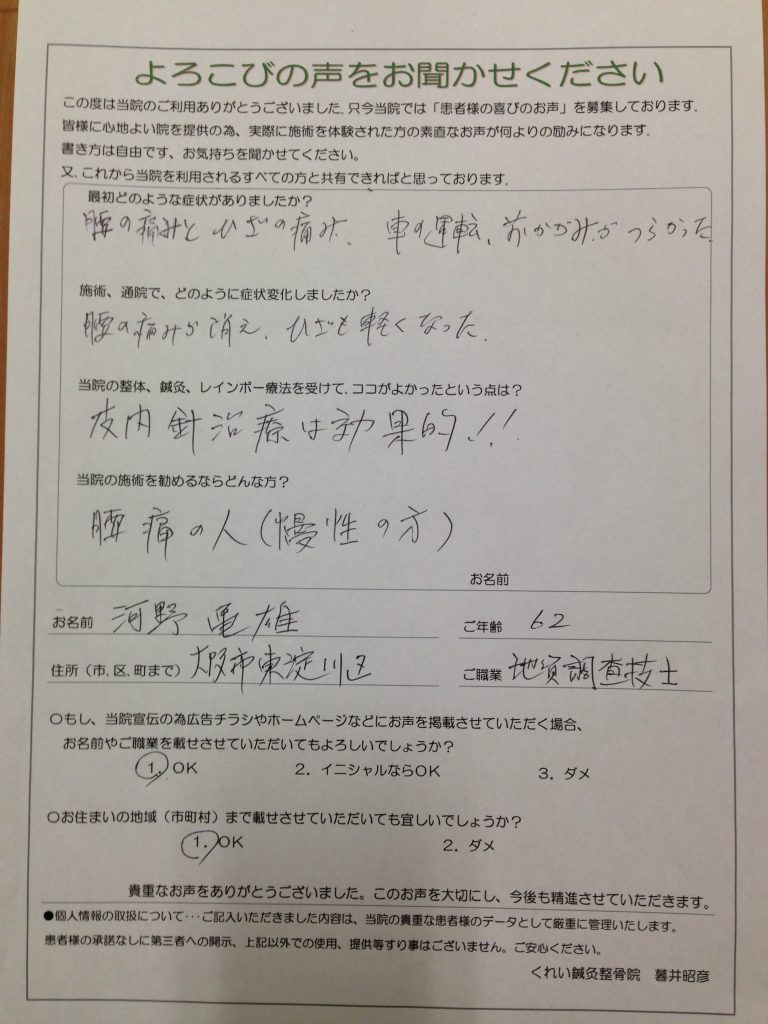 よろこびの声をお聞かせください
この度は当院のご利用ありがとうございました。只今当院では「患者様の喜びのお声」を募集しております。
皆様に心地よい院を提供の為、実際に施術を体験された方の素直なお声が何よりの励みになります。
書き方は自由です、お気持ちを聞かせてください。
又、これから当院を利用されるすべての方と共有できればと思っております。
最初どのような症状がありましたか？
腰の痛みとひざの痛み、車の運転、前かがみがつらかった
施術、通院で、どのように症状変化しましたか？
腰の痛みが消え、ひざも軽くなった。
当院の整体、鍼灸、レインボー療法を受けて、ココがよかったという点は？
皮内針治療は効果的!!
当院の施術を勧めるならどんな方？
腰痛の人(慢性の方)
お名前
お名前 河野 亀雄 ご年齢 62
住所（市、区、町まで） 大阪市東淀川区 ご職業 地質調査技士
○もし、当院宣伝の為広告チラシやホームページなどにお声を掲載させていただく場合、
お名前やご職業を載せさせていただいてもよろしいでしょうか？
1．OK 2．イニシャルならOK 3．ダメ
○お住まいの地域（市町村）まで載せさせていただいても宜しいでしょうか？
1．OK 2．ダメ
貴重なお声をありがとうございました。このお声を大切にし、今後も精進させていただきます。
●個人情報の取扱について･･･ご記入いただきました内容は、当院の貴重な患者様のデータとして厳重に管理いたします。
患者様の承諾なしに第三者への開示、上記以外での使用、提供等すり事はございません。ご安心ください。
くれい鍼灸整骨院 暮井昭彦